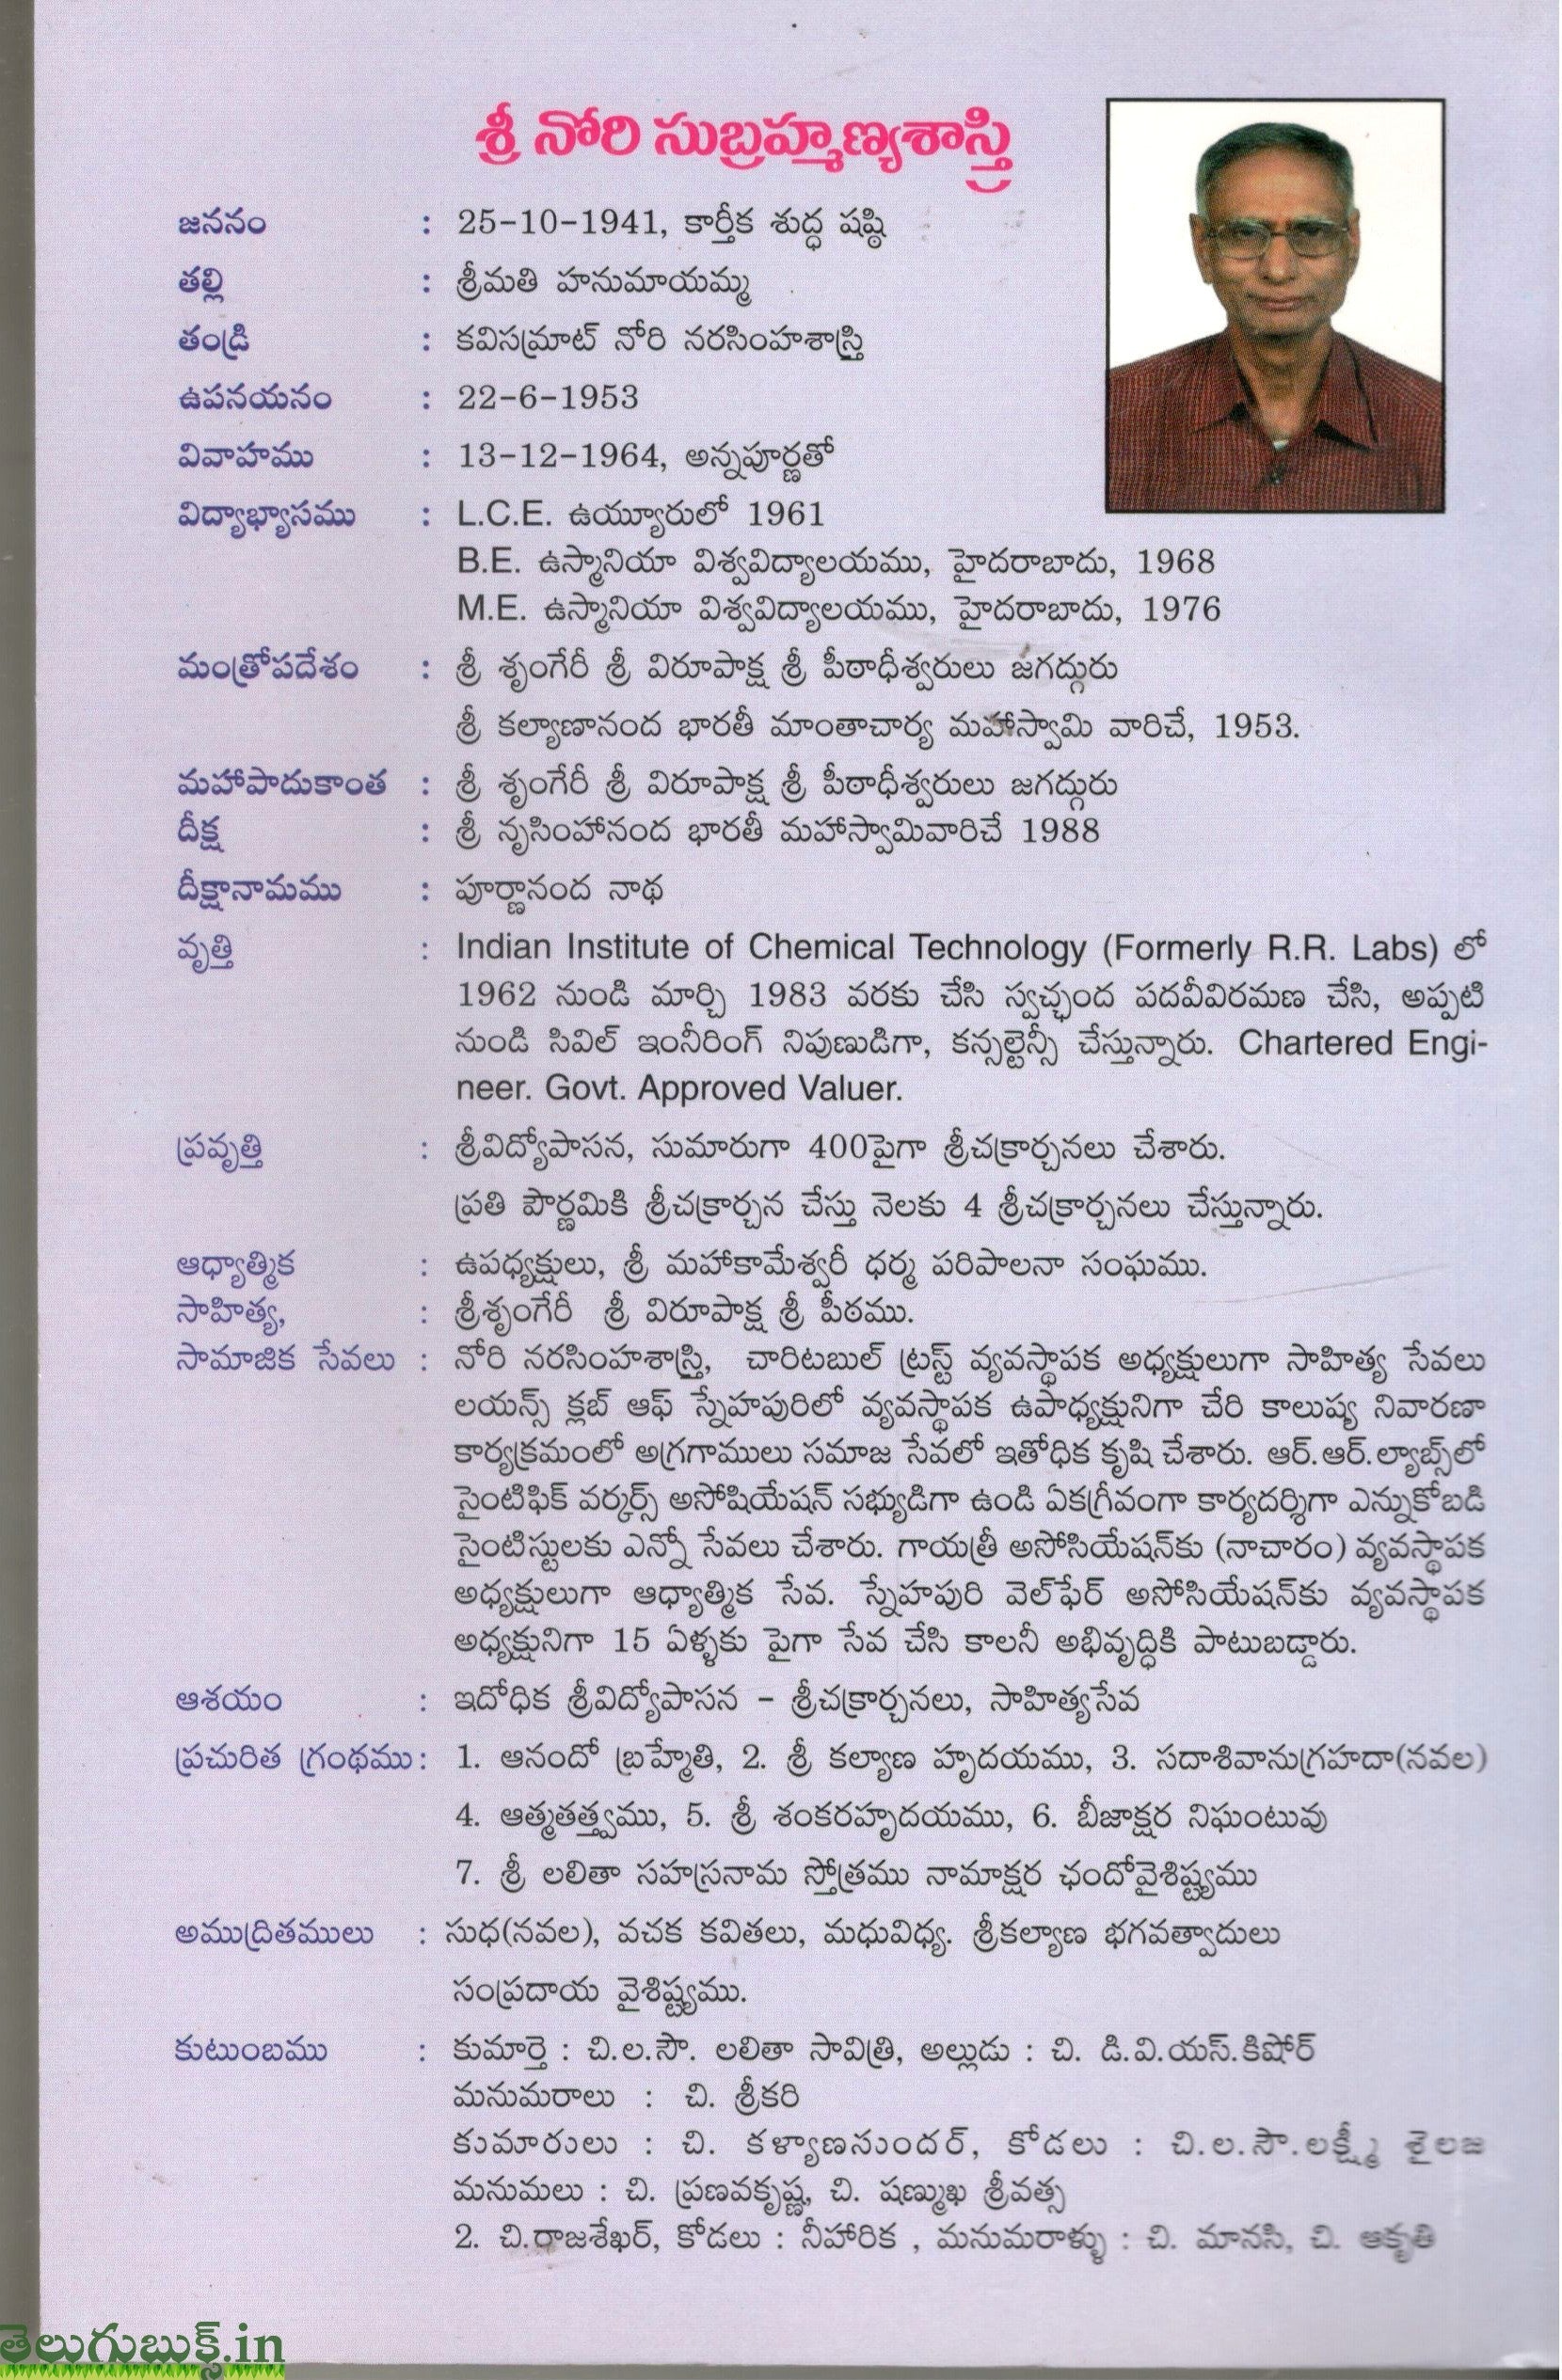 శ్రీ నోరి సుబ్రహ్మణ్యశాస్త్రి
జననం : 25-10-1941, కార్తీక శుద్ధ షష్ఠి
తల్లి : శ్రీమతి హనుమాయమ్మ
తండ్రి : కవిసమ్రాట్ నోరి నరసింహశాస్త్రి
ఉపనయనం : 22-6-1953
వివాహము : 13-12-1964, అన్నపూర్ణతో
విద్యాభ్యాసము : L.C.E. ఉయ్యూరులో 1961
B.E. ఉస్మానియా విశ్వవిద్యాలయము, హైదరాబాదు, 1968
M.E. ఉస్మానియా విశ్వవిద్యాలయము, హైదరాబాదు, 1976
మంత్రోపదేశం : శ్రీ శృంగేరీ శ్రీ విరూపాక్ష శ్రీ పీఠాధీశ్వరులు జగద్గురు
శ్రీ కల్యాణానంద భారతీ మాంతాచార్య మహాస్వామి వారిచే, 1953.
మహాపాదుకాంత : శ్రీ శృంగేరీ శ్రీ విరూపాక్ష శ్రీ పీఠాధీశ్వరులు జగద్గురు
దీక్ష : శ్రీ నృసింహానంద భారతీ మహాస్వామివారిచే 1988
దీక్షానామము : పూర్ణానంద నాథ
వృత్తి : Indian Institute of Chemical Technology (Formerly R.R. Labs) లో
1962 నుండి మార్చి 1983 వరకు చేసి స్వచ్ఛంద పదవీవిరమణ చేసి, అప్పటి
నుండి సివిల్ ఇంనీరింగ్ నిపుణుడిగా, కన్సల్టెన్సీ చేస్తున్నారు. Chartered Engi-
neer. Govt. Approved Valuer.
ప్రవృత్తి : శ్రీవిద్యోపాసన, సుమారుగా 400పైగా శ్రీచక్రార్చనలు చేశారు.
ప్రతి పౌర్ణమికి శ్రీచక్రార్చన చేస్తు నెలకు 4 శ్రీచక్రార్చనలు చేస్తున్నారు.
ఆధ్యాత్మిక : ఉపధ్యక్షులు, శ్రీ మహాకామేశ్వరీ ధర్మ పరిపాలనా సంఘము.
సాహిత్య, : శ్రీశృంగేరీ శ్రీ విరూపాక్ష శ్రీ పీఠము.
సామాజిక సేవలు : నోరి నరసింహశాస్త్రి, చారిటబుల్ ట్రస్ట్ వ్యవస్థాపక అధ్యక్షులుగా సాహిత్య సేవలు
లయన్స్ క్లబ్ ఆఫ్ స్నేహపురిలో వ్యవస్థాపక ఉపాధ్యక్షునిగా చేరి కాలుష్య నివారణా
కార్యక్రమంలో అగ్రగాములు సమాజ సేవలో ఇతోధిక కృషి చేశారు. ఆర్.ఆర్.ల్యాబ్స్‌లో
సైంటిఫిక్ వర్కర్స్ అసోషియేషన్ సభ్యుడిగా ఉండి ఏకగ్రీవంగా కార్యదర్శిగా ఎన్నుకోబడి
సైంటిస్టులకు ఎన్నో సేవలు చేశారు. గాయత్రీ అసోసియేషన్‌కు (నాచారం) వ్యవస్థాపక
అధ్యక్షులుగా ఆధ్యాత్మిక సేవ. స్నేహపురి వెల్‌ఫేర్ అసోసియేషన్‌కు వ్యవస్థాపక
అధ్యక్షునిగా 15 ఏళ్ళకు పైగా సేవ చేసి కాలనీ అభివృద్ధికి పాటుబడ్డారు.
ఆశయం : ఇదోధిక శ్రీవిద్యోపాసన - శ్రీచక్రార్చనలు, సాహిత్యసేవ
ప్రచురిత గ్రంథము : 1. ఆనందో బ్రహ్మేతి, 2. శ్రీ కల్యాణ హృదయము, 3. సదాశివానుగ్రహదా(నవల)
4. ఆత్మతత్త్వము, 5. శ్రీ శంకరహృదయము, 6. బీజాక్షర నిఘంటువు
7. శ్రీ లలితా సహస్రనామ స్తోత్రము నామాక్షర ఛందోవైశిష్ట్యము
అముద్రితములు : సుధ(నవల), వచక కవితలు, మధువిధ్య. శ్రీకల్యాణ భగవత్వాదులు
సంప్రదాయ వైశిష్ట్యము.
కుటుంబము : కుమార్తె : చి.ల.సౌ. లలితా సావిత్రి, అల్లుడు : చి. డి.వి.యస్.కిషోర్
మనుమరాలు : చి. శ్రీకరి
కుమారులు : చి. కళ్యాణసుందర్, కోడలు : చి.ల.సౌ.లక్ష్మీ శైలజ
మనుమలు : చి. ప్రణవకృష్ణ, చి. షణ్ముఖ శ్రీవత్స
2. చి.రాజశేఖర్, కోడలు : నీహారిక , మనుమరాళ్ళు : చి. మానసి, చి. ఆకృతి
తెలుగుబుక్స్.in